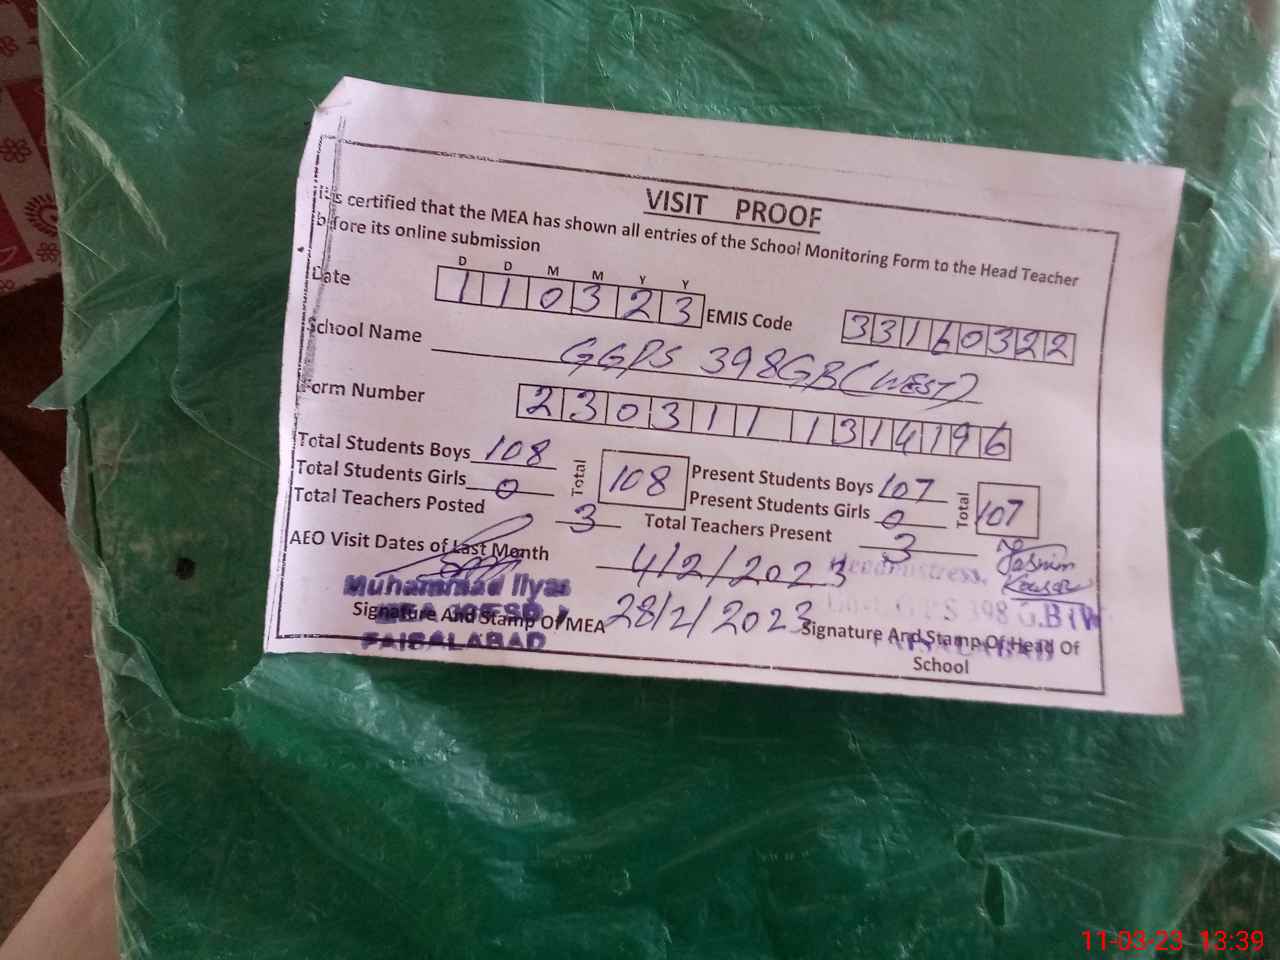 VISIT PROOF
It is certified that the MEA has shown all entries of the School Monitoring Form to the Head Teacher
before its online submission
D D M M Y Y
Date 1 1 0 3 2 3 EMIS Code 3 3 1 6 0 3 2 2
School Name GGPS 398GB(WEST)
Form Number 2 3 0 3 1 1 1 3 1 4 1 9 6
Total Students Boys 108 Total 108 Present Students Boys 107 Total 107
Total Students Girls 0 Present Students Girls 0
Total Teachers Posted 3 Total Teachers Present 3
AEO Visit Dates of Last Month 4/2/2023
28/2/2023
Kousar
Muhammad Ilyas
FAISALABAD
Signature And Stamp Of MEA
Headmistress
398 G.B(W
FAISALABAD
Signature And Stamp Of Head Of
School
11-03-23 13:39